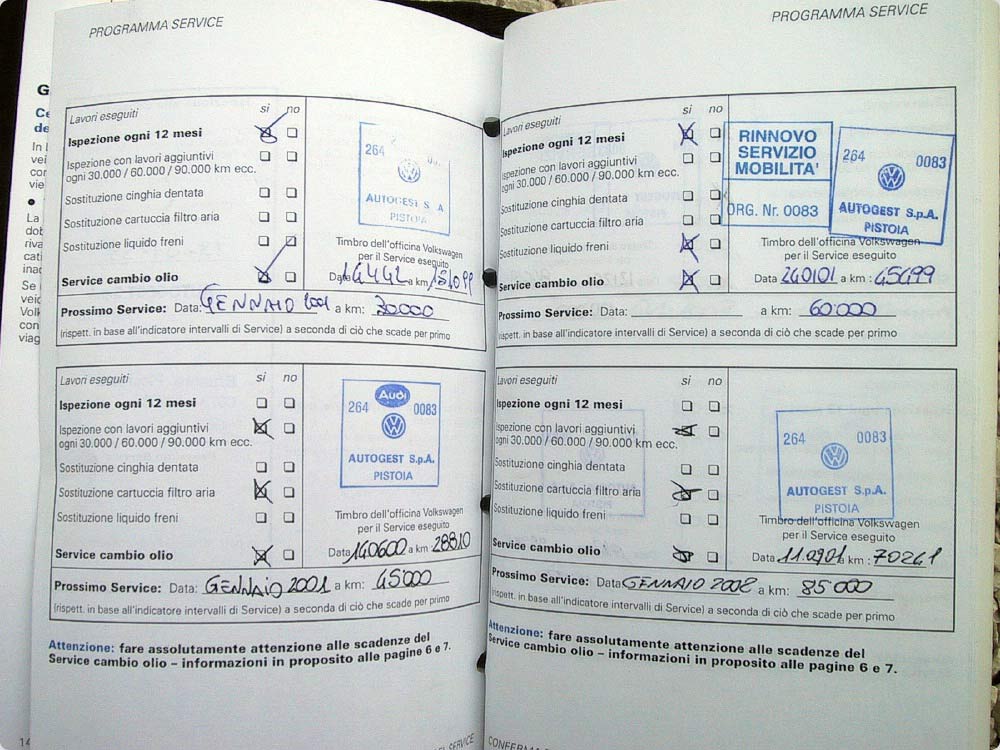 PROGRAMMA SERVICE
Lavori eseguiti si no
Ispezione ogni 12 mesi
Ispezione con lavori aggiuntivi
ogni 30.000 / 60.000 / 90.000 km ecc.
Sostituzione cinghia dentata
Sostituzione cartuccia filtro aria
Sostituzione liquido freni
Service cambio olio
264
AUTOGEST S A
PISTOIA
Timbro dell'officina Volkswagen
per il Service eseguito
Prossimo Service: Data: GENNAIO 2001 a km: 30000
(rispett. in base all'indicatore intervalli di Service) a seconda di ciò che scade per primo
Lavori eseguiti si no
Ispezione ogni 12 mesi
Ispezione con lavori aggiuntivi
ogni 30.000 / 60.000 / 90.000 km ecc.
Sostituzione cinghia dentata
Sostituzione cartuccia filtro aria
Sostituzione liquido freni
Service cambio olio
Audi
264 0083
AUTOGEST S.p.A.
PISTOIA
Timbro dell'officina Volkswagen
per il Service eseguito
Data 140600 a km 28810
Prossimo Service: Data: GENNAIO 2001 a km: 45000
(rispett. in base all'indicatore intervalli di Service) a seconda di ciò che scade per primo
Attenzione: fare assolutamente attenzione alle scadenze del
Service cambio olio – informazioni in proposito alle pagine 6 e 7.
PROGRAMMA SERVICE
Lavori eseguiti si no
Ispezione ogni 12 mesi
Ispezione con lavori aggiuntivi
ogni 30.000 / 60.000 / 90.000 km ecc.
Sostituzione cinghia dentata
Sostituzione cartuccia filtro aria
Sostituzione liquido freni
Service cambio olio
RINNOVO
SERVIZIO
MOBILITA'
ORG. Nr. 0083
264 0083
AUTOGEST S.p.A.
PISTOIA
Timbro dell'officina Volkswagen
per il Service eseguito
Data 240101 a km: 45699
Prossimo Service: Data: a km: 60000
(rispett. in base all'indicatore intervalli di Service) a seconda di ciò che scade per primo
Lavori eseguiti si no
Ispezione ogni 12 mesi
Ispezione con lavori aggiuntivi
ogni 30.000 / 60.000 / 90.000 km ecc.
Sostituzione cinghia dentata
Sostituzione cartuccia filtro aria
Sostituzione liquido freni
Service cambio olio
264 0083
AUTOGEST S.p.A.
PISTOIA
Timbro dell'officina Volkswagen
per il Service eseguito
Data 110901 a km: 70241
Prossimo Service: Data GENNAIO 2002 a km: 85000
(rispett. in base all'indicatore intervalli di Service) a seconda di ciò che scade per primo
Attenzione: fare assolutamente attenzione alle scadenze del
Service cambio olio – informazioni in proposito alle pagine 6 e 7.